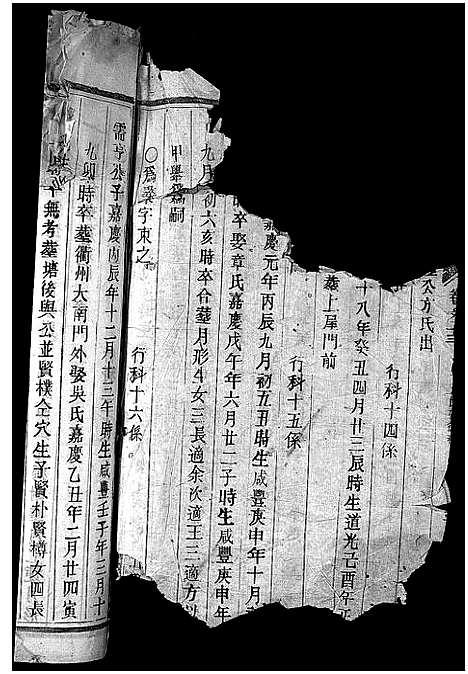 公方氏出
行科十四係
十八年癸丑四月廿三辰時生道光己酉年
墓上屋門前
行科十五係
嘉慶元年丙辰九月初五丑時生咸豐庚申年十月
時卒娶章氏嘉慶戊午年六月廿二子時生咸豐庚申年
九月初六亥時卒合墓月形4女三長適余次適王三適方以
甲舉爲嗣
〇爲業字東之
行科十六係
儒亨公子嘉慶丙辰年十二月十三午時生咸豐壬子年三月十
九卯時卒墓衢州大南門外娶吳氏嘉慶乙丑年二月廿四寅
無考墓塘後與公並賢樸仝穴生子賢朴賢樽女四長